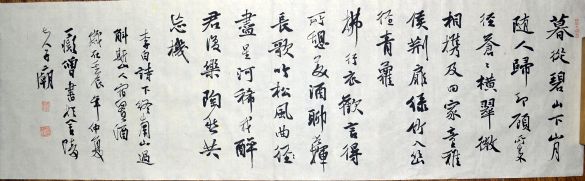 暮從碧山下山月
隨人歸卻顧所來
徑蒼々橫翠微
相攜及田家童稚
荆扉綠竹入幽
徑青蘿
拂行衣歡言得
所憩美酒聊揮
長歌吟松風曲
盡星河稀我醉
君復樂陶然共
忘機
李白詩下終南山過
斛斯山人宿置酒
歲在壬辰年仲夏
書於金陵